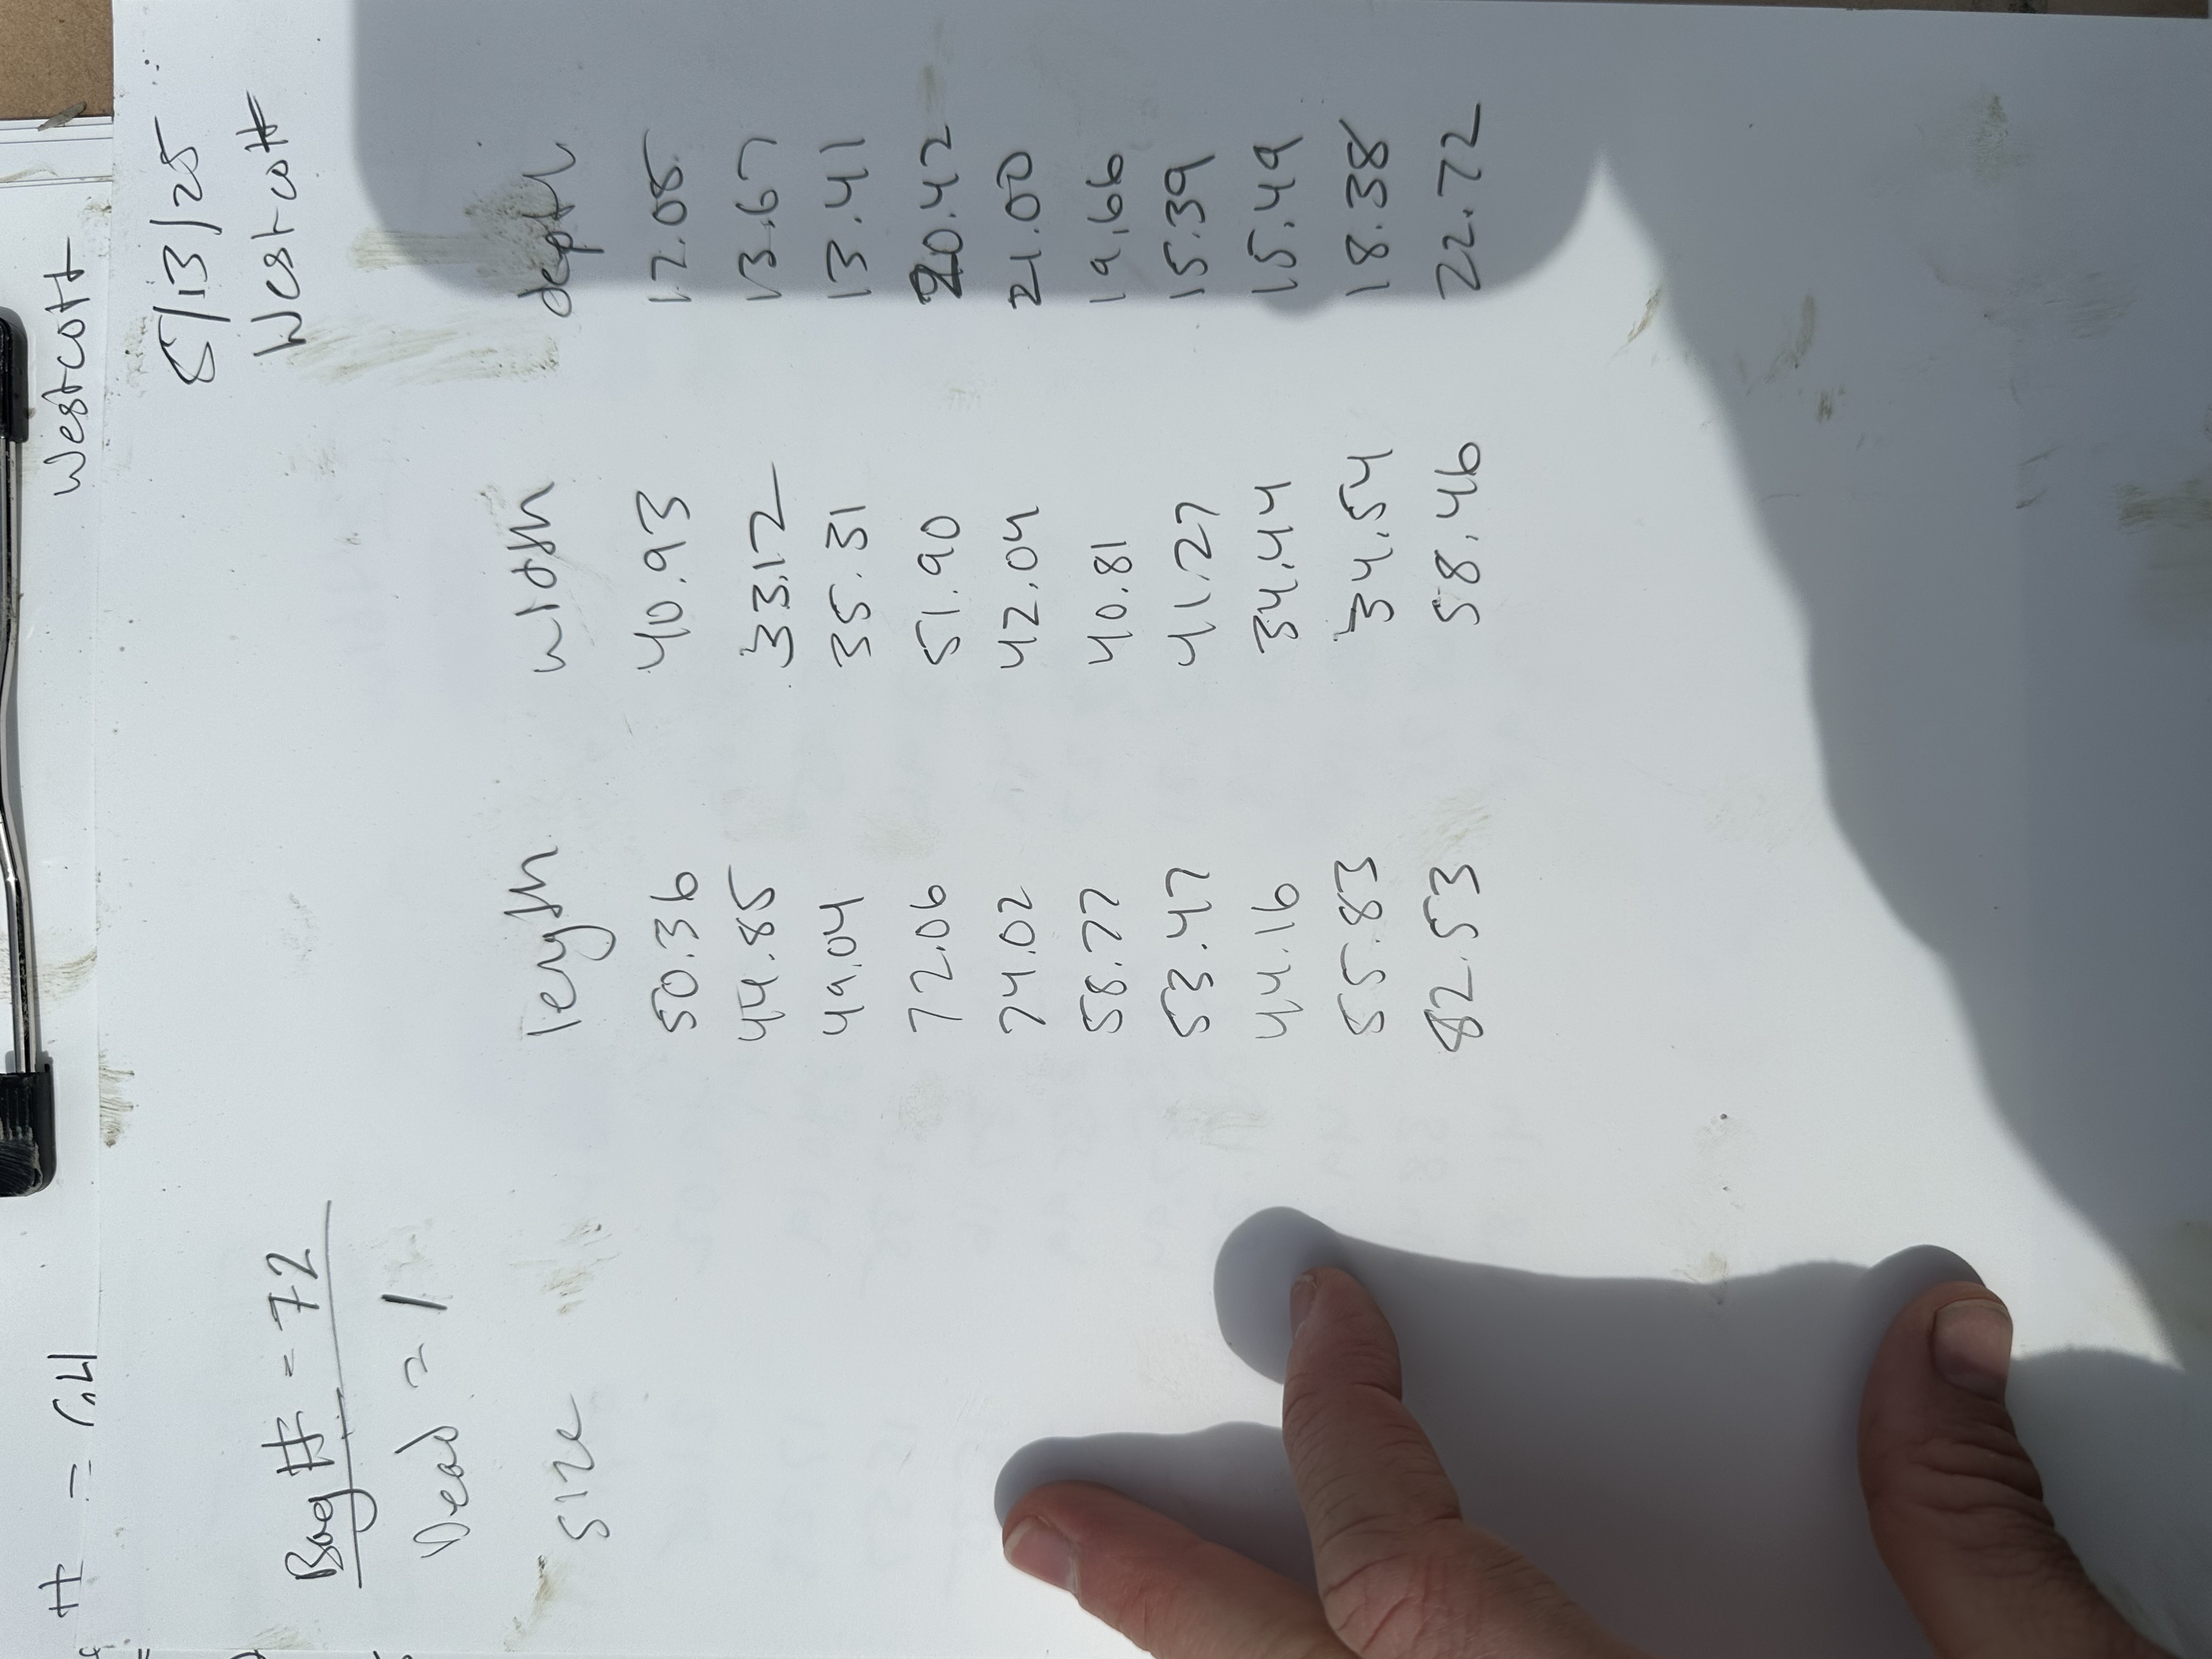 # = 64
Westcott
5/13/25
Westcott
Bag # = 72
Dead = 1
size length width depth
50.36 40.93 12.05
44.85 33.12 13.67
49.04 35.31 13.41
72.06 51.90 20.42
74.02 42.04 21.00
58.77 40.81 19.66
53.47 41.27 15.39
44.16 34.44 15.49
55.83 34.54 18.38
82.53 58.46 22.72